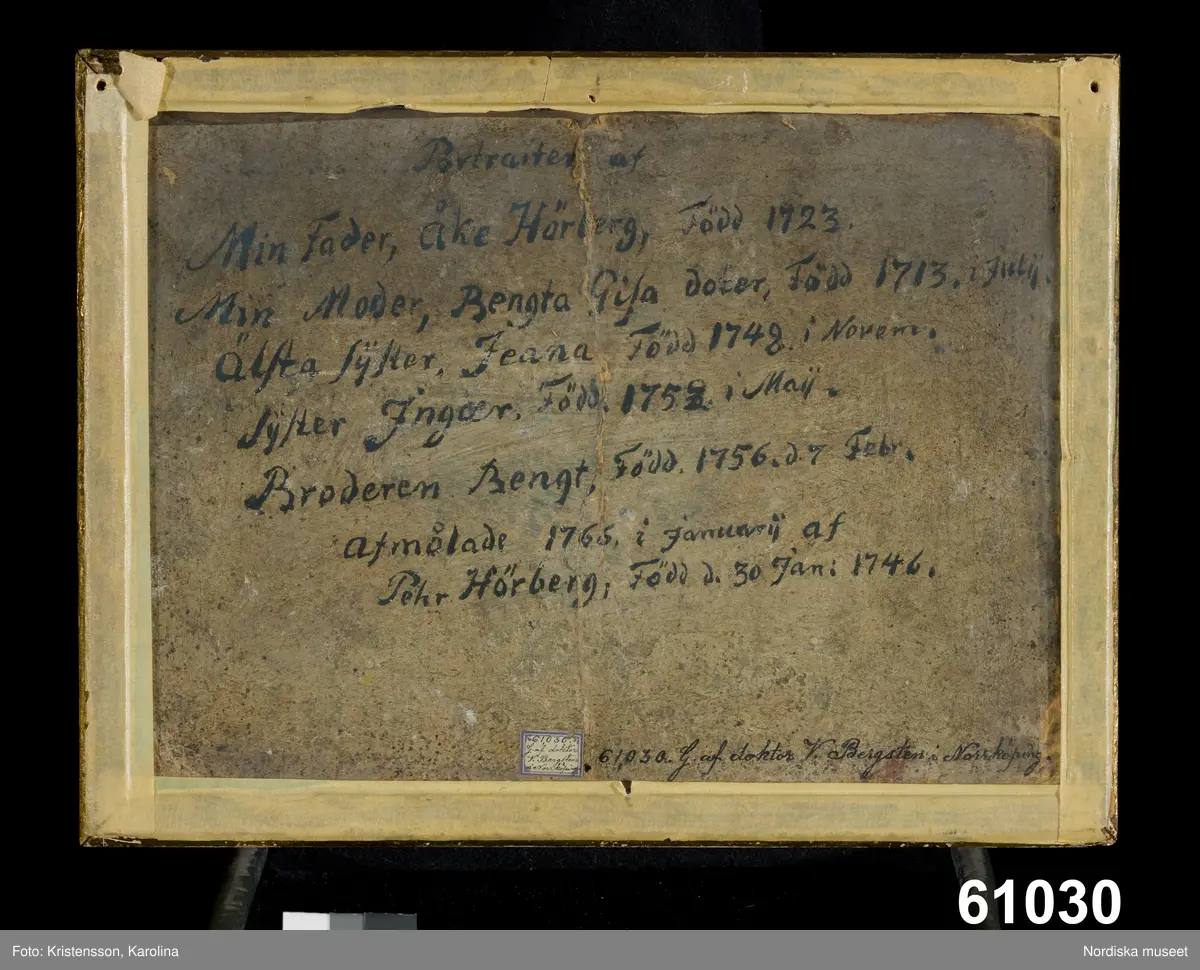 Portraiter af
Min Fader, Åke Hörberg, Född 1723.
Min Moder, Bengta Gisa doter, Född 1713. i Julij.
Älsta Syster, Jeana Född 1748. i Novem.
Syster Jngær, Född. 1752. i Maij.
Broderen Bengt, Född. 1756. d. 7 Febr.
Afmålade 1765. i Januarij af
Pehr Hörberg, Född d. 30 Jan: 1746.
61030.
G. af doktor
V. Bergsten
i Norrköping
61030. G. af doktor V. Bergsten i Norrköping.
61030
Foto: Kristensson, Karolina
Nordiska museet